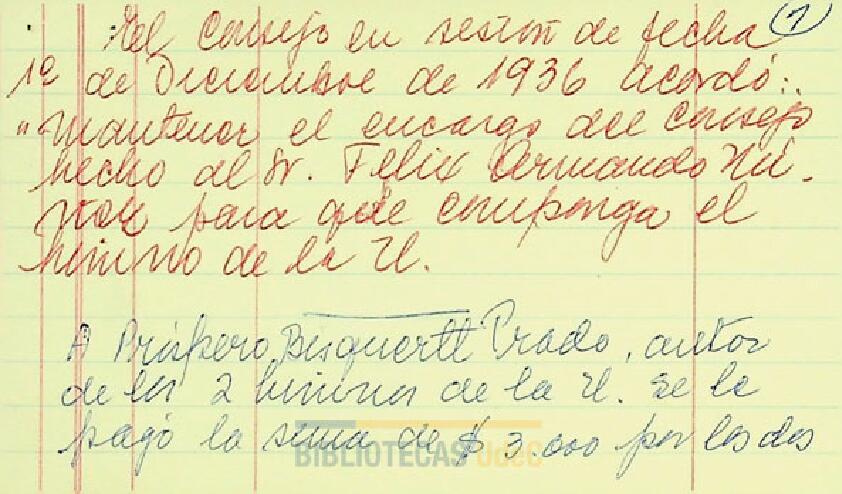 ①
El Consejo en sesión de fecha
1º de Diciembre de 1936 acordó:
"Mantener el encargo del Consejo
hecho al Sr. Felix Armando Nú-
ñez para que componga el
himno de la U.
A Próspero Bisquertt Prado, autor
de los 2 himnos de la U. se le
pagó la suma de $ 3.000 por los dos
BIBLIOTECAS UdeC